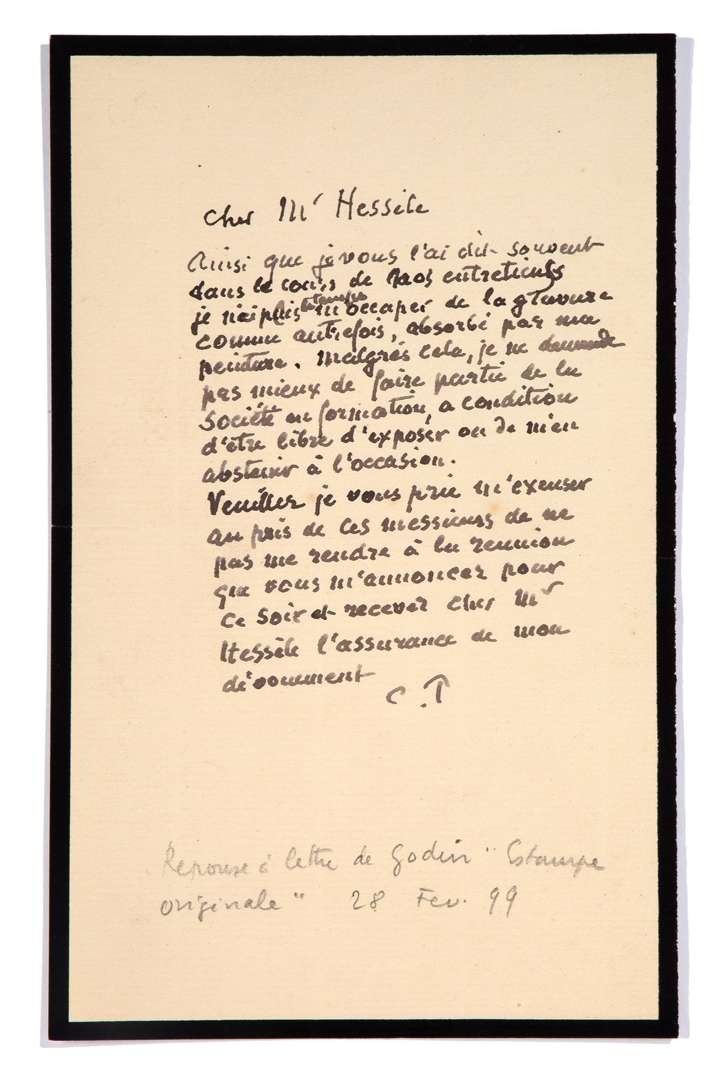 cher Mr Hessèle
Ainsi que je vous l'ai dit souvent
dans le cours de nos entretients
je n'ai plus le temps m'occuper de la gravure
comme autrefois, absorbé par ma
peinture. Malgrés cela, je ne demande
pas mieux de faire partie de la
Société en formation, a condition
d'être libre d'exposer ou de m'en
abstenir à l'occasion.
Veuillez je vous prie m'excuser
au près de ces messieurs de ne
pas me rendre à la reunion
que vous m'annoncez pour
ce soir et recevez cher Mr
Hessèle l'assurance de mon
dévouement
C.P
Reponse à lettre de Godin "Estampe
originale" 28 Fev. 99